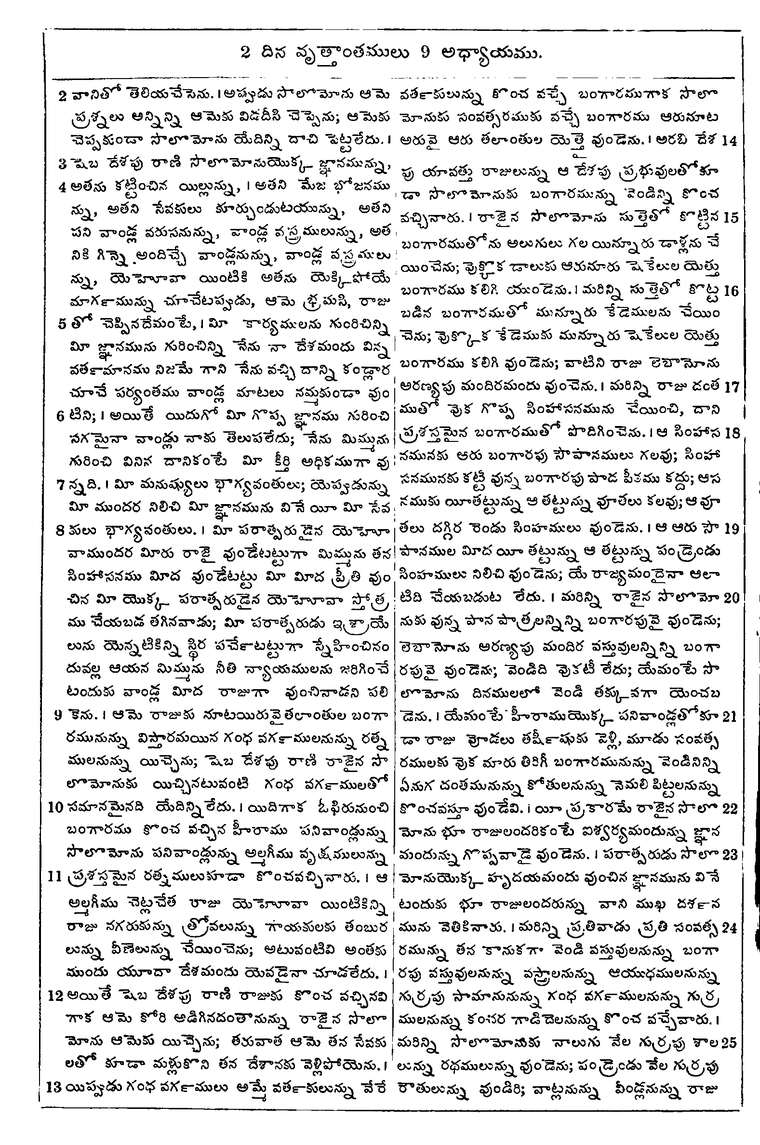 2 దిన వృత్తాంతములు 9 అధ్యాయము.
2 వానితో తెలియచేసెను. । అప్వుడు సొలొమోను ఆమె
ప్రశ్నలు అన్నిన్ని ఆమెకు విడదీసి చెప్పెను; ఆమెకు
చెప్పకుండా సొలొమోను యేదిన్ని దాచి పెట్టలేదు. ।
3 షెబ దేశపు రాణి సొలొమోనుయొక్క జ్ఞానమున్ను,
4 అతను కట్టించిన యిల్లున్ను, । అతని మేజ భోజనము
న్ను, అతని సేవకులు కూర్చుండుటయున్ను, అతని
పని వాండ్ల వరుసనున్ను, వాండ్ల వస్త్రములున్ను, అత
నికి గిన్నె అందిచ్చే వాండ్లనున్ను, వాండ్ల వస్త్రములు
న్ను, యెహోవా యింటికి అతను యెక్కిపోయే
మార్గమున్ను చూచేటప్వుడు, ఆమె భ్రమసి, రాజు
5 తో చెప్పినదేమంటే, । మీ కార్యములను గురించిన్ని
మీ జ్ఞానమును గురించిన్ని నేను నా దేశమందు విన్న
వర్తమానము నిజమే గాని నేను వచ్చి దాన్ని కండ్లార
చూచే పర్యంతము వాండ్ల మాటలు నమ్మకుండా వుం
6 టిని; । అయితే యిదుగో మీ గొప్ప జ్ఞానము గురించి
సగమైనా వాండ్లు నాకు తెలుపలేదు; నేను మిమ్మును
గురించి వినిన దానికంటే మీ కీర్తి అధికముగా వు
7 న్నది. । మీ మనుష్యులు భాగ్యవంతులు; యెప్వుడున్ను
మీ ముందర నిలిచి మీ జ్ఞానమును వినే యీ మీ సేవ
8 కులు భాగ్యవంతులు. । మీ పరాత్పరుడైన యెహో
వాముందర మీరు రాజై వుండేటట్టుగా మిమ్మును తన
సింహాసనము మీద వుండేటట్టు మీ మీద ప్రీతి వుం
చిన మీ యొక్క పరాత్పరుడైన యెహోవా స్తోత్ర
ము చేయబడ తగినవాడు; మీ పరాత్పరుడు ఇశ్రాయే
లును యెన్నటికిన్ని స్థిర పర్చేటట్టుగా స్నేహించినం
దువల్ల ఆయన మిమ్మును నీతి న్యాయములను జరిగించే
టందుకు వాండ్ల మీద రాజుగా వుంచివాడని పలి
9 కెను. । ఆమె రాజుకు నూటయిరువైతలాంతుల బంగా
రమునున్ను విస్తారమయిన గంధ వర్గములనున్ను రత్న
ములనున్ను యిచ్చెను; షెబ దేశపు రాణి రాజైన సొ
లొమోనుకు యిచ్చినటువంటి గంధ వర్గములతో
10 సమానమైనది యేదిన్ని లేదు. । యిదిగాక ఓఫిరునుంచి
బంగారము కొంచ వచ్చిన హీరాము పనివాండ్లున్ను
సొలొమోను పనివాండ్లున్ను అల్మగీము వృక్షములున్ను
11 ప్రశస్తమైన రత్నములుకూడా కొంచవచ్చినారు. । ఆ
అల్మగీము చెట్లచేత రాజు యెహోవా యింటికిన్ని
రాజు నగరుకున్ను త్రోవలున్ను గాయకులకు తంబుర
లున్ను వీణెలున్ను చేయించెను; అటువంటివి అంతకు
ముందు యూదా దేశమందు యెవడైనా చూడలేదు. ।
12 అయితే షెబ దేశపు రాణి రాజుకు కొంచ వచ్చినవి
గాక ఆమె కోరి అడిగినదంతానున్ను రాజైన సొలొ
మోను ఆమెకు యిచ్చెను; తరువాత ఆమె తన సేవకు
లతో కూడా మళ్లుకొని తన దేశానకు వెళ్లిపోయెను. ।
13 యిప్వుడు గంధ వర్గములు అమ్మే వర్తకులున్ను వేరే
వర్తకులున్ను కొంచ వచ్చే బంగారముగాక సొలొ
మోనుకు సంవత్సరముకు వచ్చే బంగారము ఆరునూట
అరువై ఆరు తలాంతుల యెత్తై వుండెను. । అరబి దేశ 14
పు యావత్తు రాజులున్ను ఆ దేశపు ప్రభువులతోకూ
డా సొలొమోనుకు బంగారమున్ను వెండిన్ని కొంచ
వచ్చినారు. । రాజైన సొలొమోను సుత్తెతో కొట్టిన 15
బంగారముతోను అలుగులు గల యిన్నూరు డాళ్లను చే
యించెను; వొక్కొక డాలుకు ఆరునూరు షెకేలుల యెత్తు
బంగారము కలిగి యుండెను. । మరిన్ని సుత్తెతో కొట్ట 16
బడిన బంగారముతో మున్నూరు కేడెములను చేయిం
చెను; వొక్కొక కేడెముకు మున్నూరు షెకేలుల యెత్తు
బంగారము కలిగి వుండెను; వాటిని రాజు లెబానోను
ఆరణ్యపు మందిరమందు వుంచెను. । మరిన్ని రాజు దంత 17
ముతో వొక గొప్ప సింహాసనమును చేయించి, దాని
ప్రశస్తమైన బంగారముతో పొదిగించెను. । ఆ సింహాస 18
నమునకు ఆరు బంగారపు సొపానములు గలవు; సింహా
సనమునకు కట్టి వున్న బంగారపు పాద పీఠము కద్దు; ఆస
నముకు యీతట్టున్ను ఆ తట్టున్ను వూతలు కలవు; ఆ వూ
తలు దగ్గిర రెండు సింహములు వుండెను. । ఆ ఆరు సొ 19
పానముల మీద యీ తట్టున్ను ఆ తట్టున్ను పండ్రెండు
సింహములు నిలిచి వుండెను; యే రాజ్యమందైనా ఆలా
టిది చేయబడుట లేదు. । మరిన్ని రాజైన సొలొమో 20
నుకు వున్న పాన పాత్రలన్నిన్ని బంగారపువై వుండెను;
లెబానోను అరణ్యపు మందిర వస్తువులన్నిన్ని బంగా
రపువై వుండెను; వెండిది వొకటీ లేదు; యేమంటే సొ
లొమోను దినములలో వెండి తక్కువగా యెంచబ
డెను. । యేమంటే హీరాముయొక్క పనివాండ్లతోకూ 21
డా రాజు వోడలు తర్షీషుకు వెళ్లి, మూడు సంవత్స
రములకు వొక మారు తిరిగీ బంగారమునున్ను వెండినిన్ని
ఏనుగ దంతమునున్ను కోతులనున్ను నెమలి పిట్టలనున్ను
కొంచవస్తూ వుండేవి. । యీ ప్రకారమే రాజైన సొలొ 22
మోను భూ రాజులందరికంటే ఐశ్వర్యమందున్ను జ్ఞాన
మందున్ను గొప్పవాడై వుండెను. । పరాత్పరుడు సొలొ 23
మోనుయొక్క హృదయమందు వుంచిన జ్ఞానమును వినే
టందుకు భూ రాజులందరున్ను వాని ముఖ దర్శన
మును వెతికినారు. । మరిన్ని ప్రతివాడు ప్రతి సంవత్స 24
రమున్ను తన కానుకగా వెండి వస్తువులనున్ను బంగా
రపు వస్తువులనున్ను వస్త్రాలనున్ను ఆయుధములనున్ను
గుర్రపు సామానునున్ను గంధ వర్గములనున్ను గుర్ర
ములనున్ను కంచర గాడిదెలనున్ను కొంచ వచ్చేవారు. ।
మరిన్ని సొలొమోనుకు నాలుగు వేల గుర్రపు శాల 25
లున్ను రథములున్ను వుండెను; పండ్రెండు వేల గుర్రపు
రౌతులున్ను వుండిరి; వాట్లనున్ను వీండ్లనున్ను రాజు